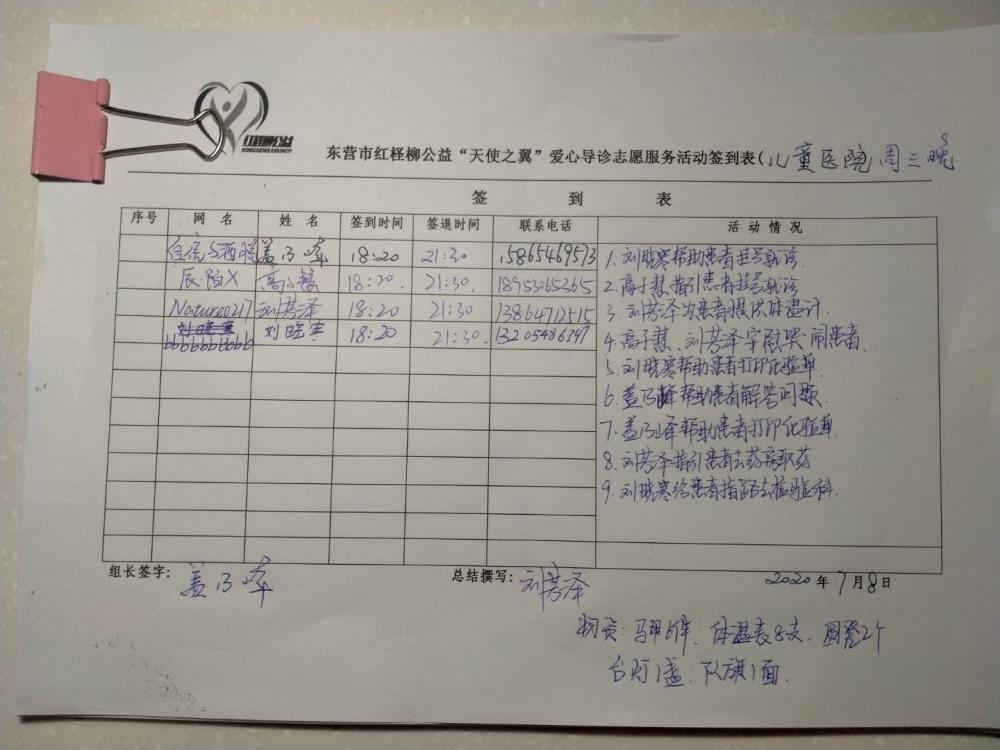 红柽柳公益
HONGCHENGLIUGONGYI
东营市红柽柳公益“天使之翼”爱心导诊志愿服务活动签到表(儿童医院周三晚
签 到 表
序号 网 名 姓 名 签到时间 签退时间 联系电话 活 动 情 况
盖乃峰 18:20 21:30 15865469513
辰·陌X 高子慧 18:20 21:30 18953065265
Nature0217 刘芳泽 18:20 21:30 13864712515
bbbbbbbbbb 刘晓寒 18:20 21:30 13205486347
1. 刘晓寒帮助患者挂号就诊
2. 高子慧指引患者挂号就诊
3. 刘芳泽为患者提供体温计
4. 高子慧、刘芳泽安慰哭闹患者
5. 刘晓寒帮助患者打印化验单
6. 盖乃峰帮助患者解答问题
7. 盖乃峰帮助患者打印化验单
8. 刘芳泽指引患者去药房取药
9. 刘晓寒给患者指路去检验科.
组长签字: 盖乃峰 总结撰写: 刘芳泽 2020年7月8日
物资: 马甲 件、体温表8支、圆凳2个
台灯1盏、队旗1面.